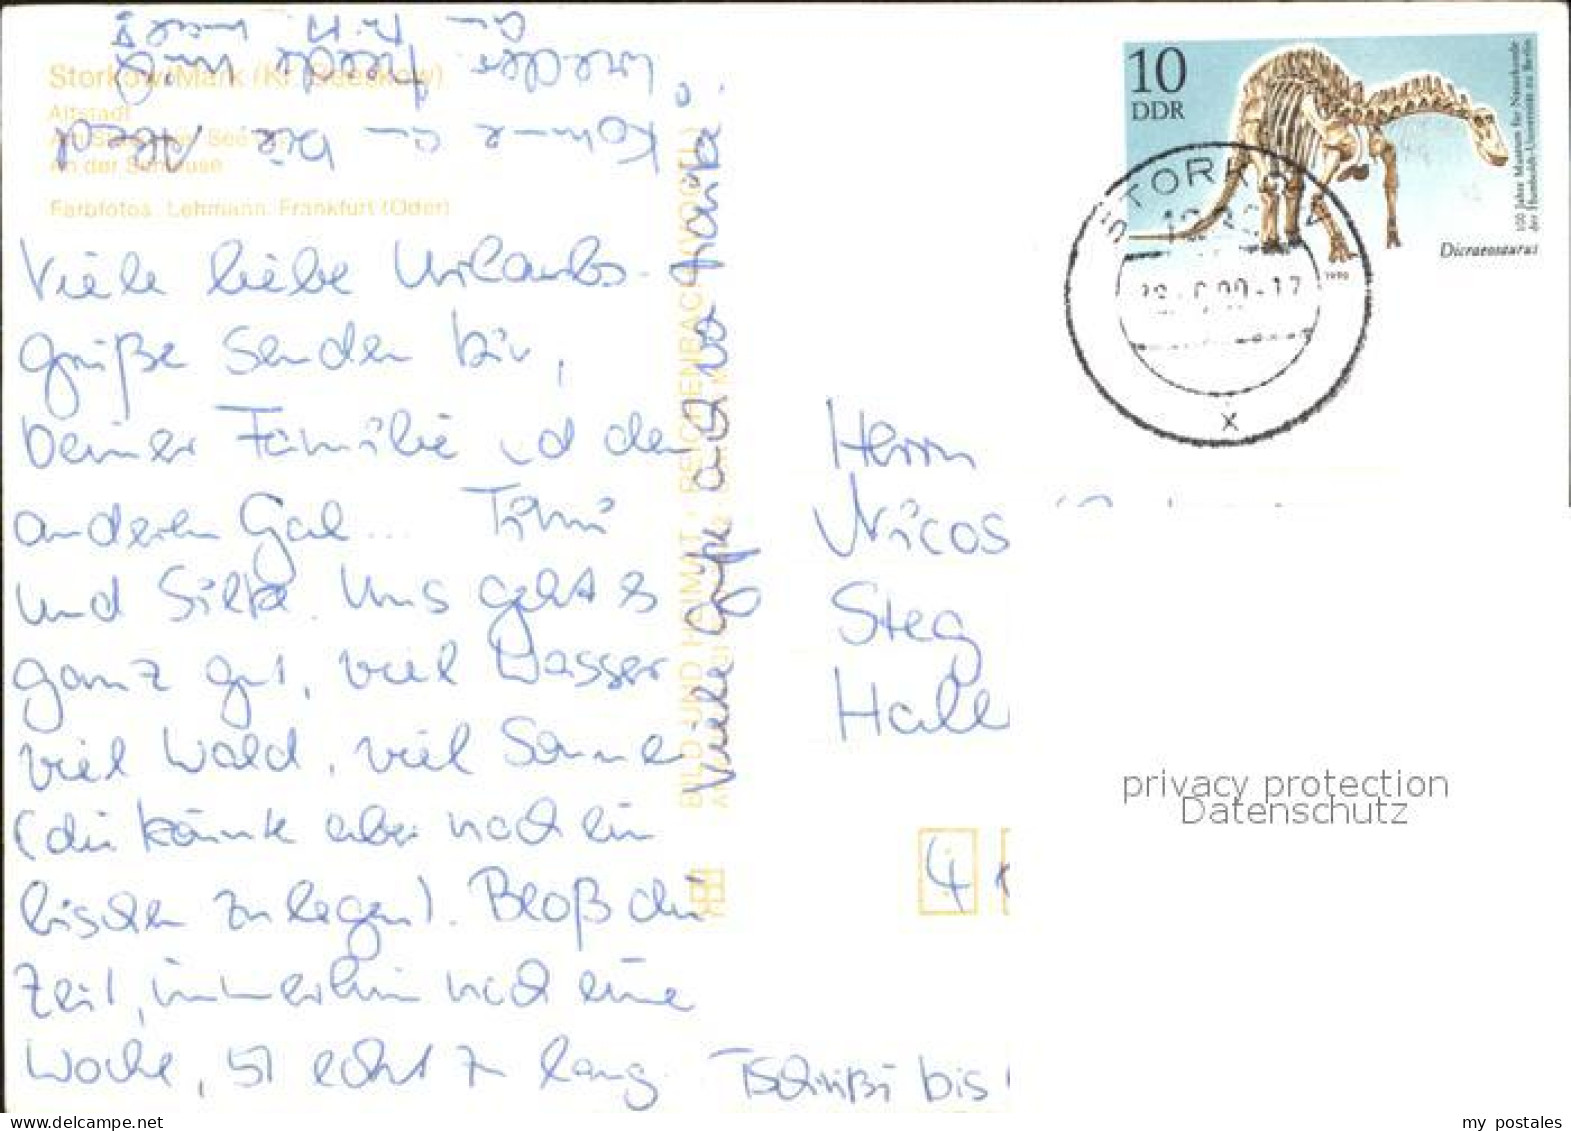 Storkow/Mark (Kr. Beeskow)
Altstadt
An der Schleuse
Farbfotos: Lehmann, Frankfurt (Oder)
Viele liebe Urlaubs-
grüße senden Dir,
Deiner Familie und den
anderen Gal... Timi
und Silke. Uns geht es
ganz gut, viel Wasser
viel Wald, viel Sonne
(die könnte aber noch ein
bischen zulegen). Bloß die
Zeit, immerhin noch eine
Woche, ist echt zu lang.
Tschüßi bis
wieder
Viele Grüße
BILD UND HEIMAT · REICHENBACH (VOGTL)
10
DDR
100 Jahre Museum für Naturkunde
der Humboldt-Universität zu Berlin
Dicraeosaurus
1990
STORKOW
-17
x
Herrn
Nicos
Steg
Hale
4
privacy protection
Datenschutz
my postales